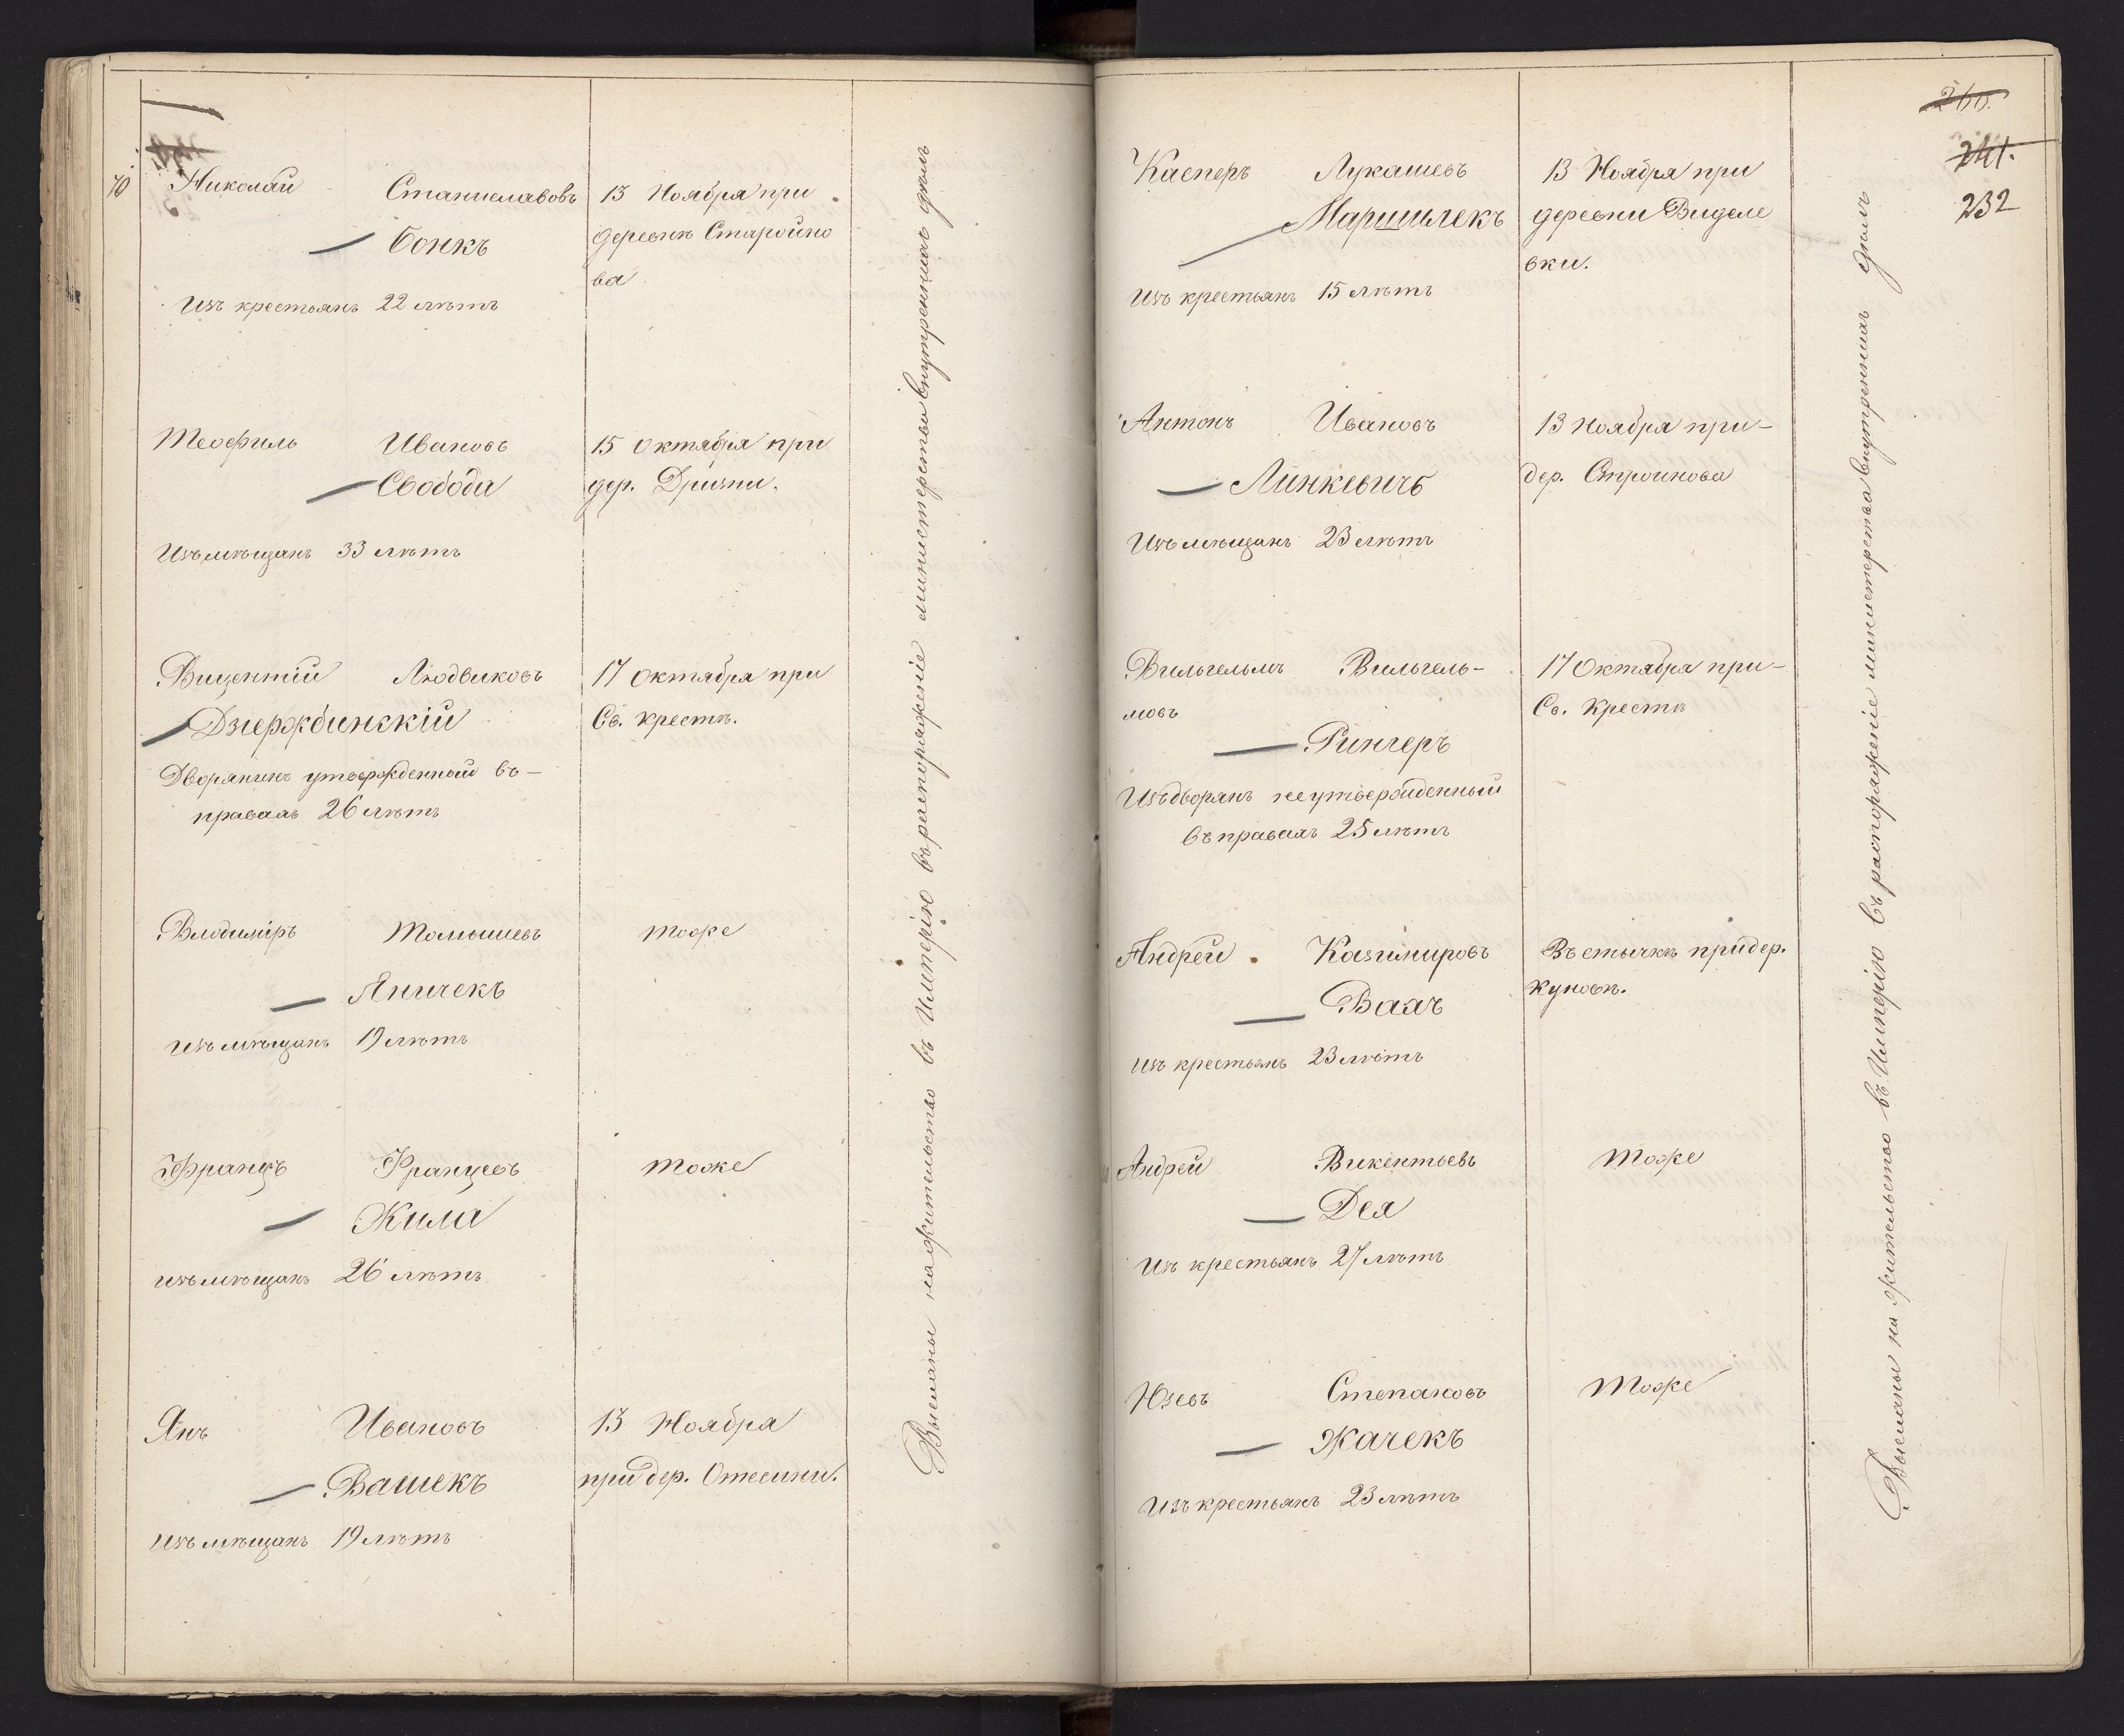 70 Николай Станиславовъ 13 Ноября при
Бонкъ деревнѣ Старойно
ва
Изъ крестьянъ 22 лѣтъ
Теофиль Ивановъ 15 Октября при
Свобода дер.
Изъ мѣщанъ 33 лѣтъ
Вицентій Людвиковъ 17 Октября при
Дзержбинскій Св. крестѣ.
Дворянинъ утвержденный въ-
правахъ 26 лѣтъ
Влодиміръ Томышевъ тоже
Яничекъ
изъ мѣщанъ 19 лѣтъ
Францъ Францевъ тоже
Жила
изъ мѣщанъ 26 лѣтъ
Янъ Ивановъ 13 Ноября
Вашекъ при дер.
изъ мѣщанъ 19 лѣтъ
Высланы на жительство въ Имперію въ распоряженіе министерства внутреннихъ дѣлъ
260.
241.
232
Касперъ Лукашевъ 13 Ноября при
Маршилекъ деревни Виделе
вки.
Изъ крестьянъ 15 лѣтъ
Антонъ Ивановъ 13 Ноября при-
Линкевичъ дер. Строинова
Изъ мѣщанъ 23 лѣтъ
Вильгельмъ Вильгель- 17 Октября при-
мовъ Св. Крестѣ
Рингеръ
Изъ дворянъ неутвержденный
въ правахъ 25 лѣтъ
Андрей Казимировъ Въ стычкѣ при дер.
Вахъ Куновѣ.
изъ крестьянъ 23 лѣтъ
Андрей Викентьевъ Тоже
Дея
Изъ крестьянъ 27 лѣтъ
Юзевъ Степановъ Тоже
Жачекъ
Изъ крестьянъ 23 лѣтъ
Высланы на жительство въ Имперію въ распоряженіе министерства внутреннихъ дѣлъ